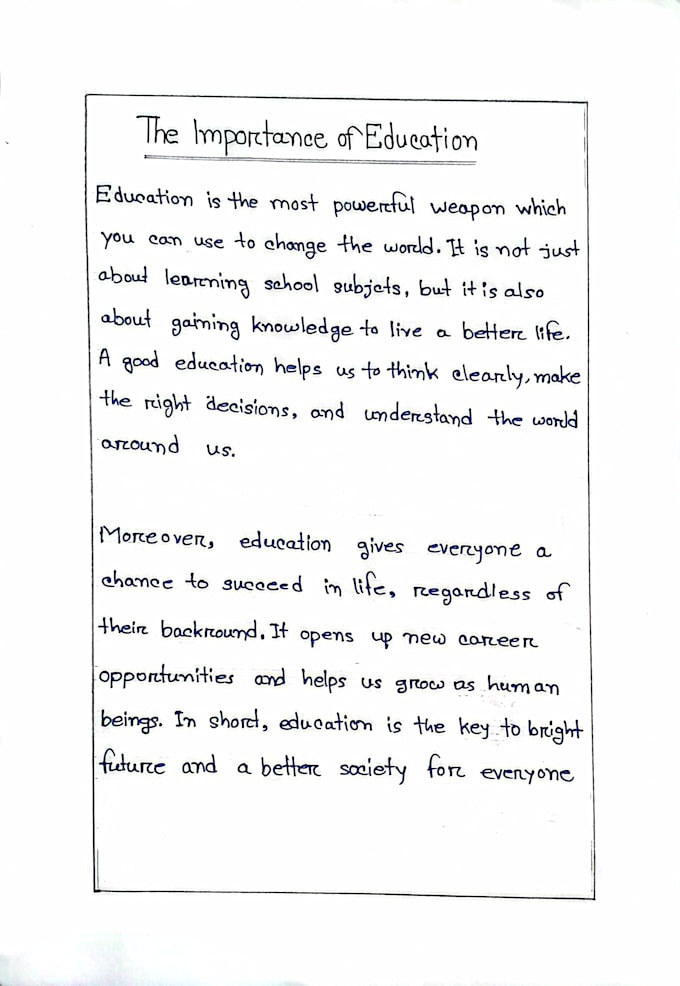 The Importance of Education
Education is the most powerful weapon which
you can use to change the world. It is not just
about learning school subjets, but it is also
about gaining knowledge to live a better life.
A good education helps us to think clearly, make
the right decisions, and understand the world
around us.
Moreover, education gives everyone a
chance to succeed in life, regardless of
their backround. It opens up new career
opportunities and helps us grow as human
beings. In short, education is the key to bright
future and a better society for everyone